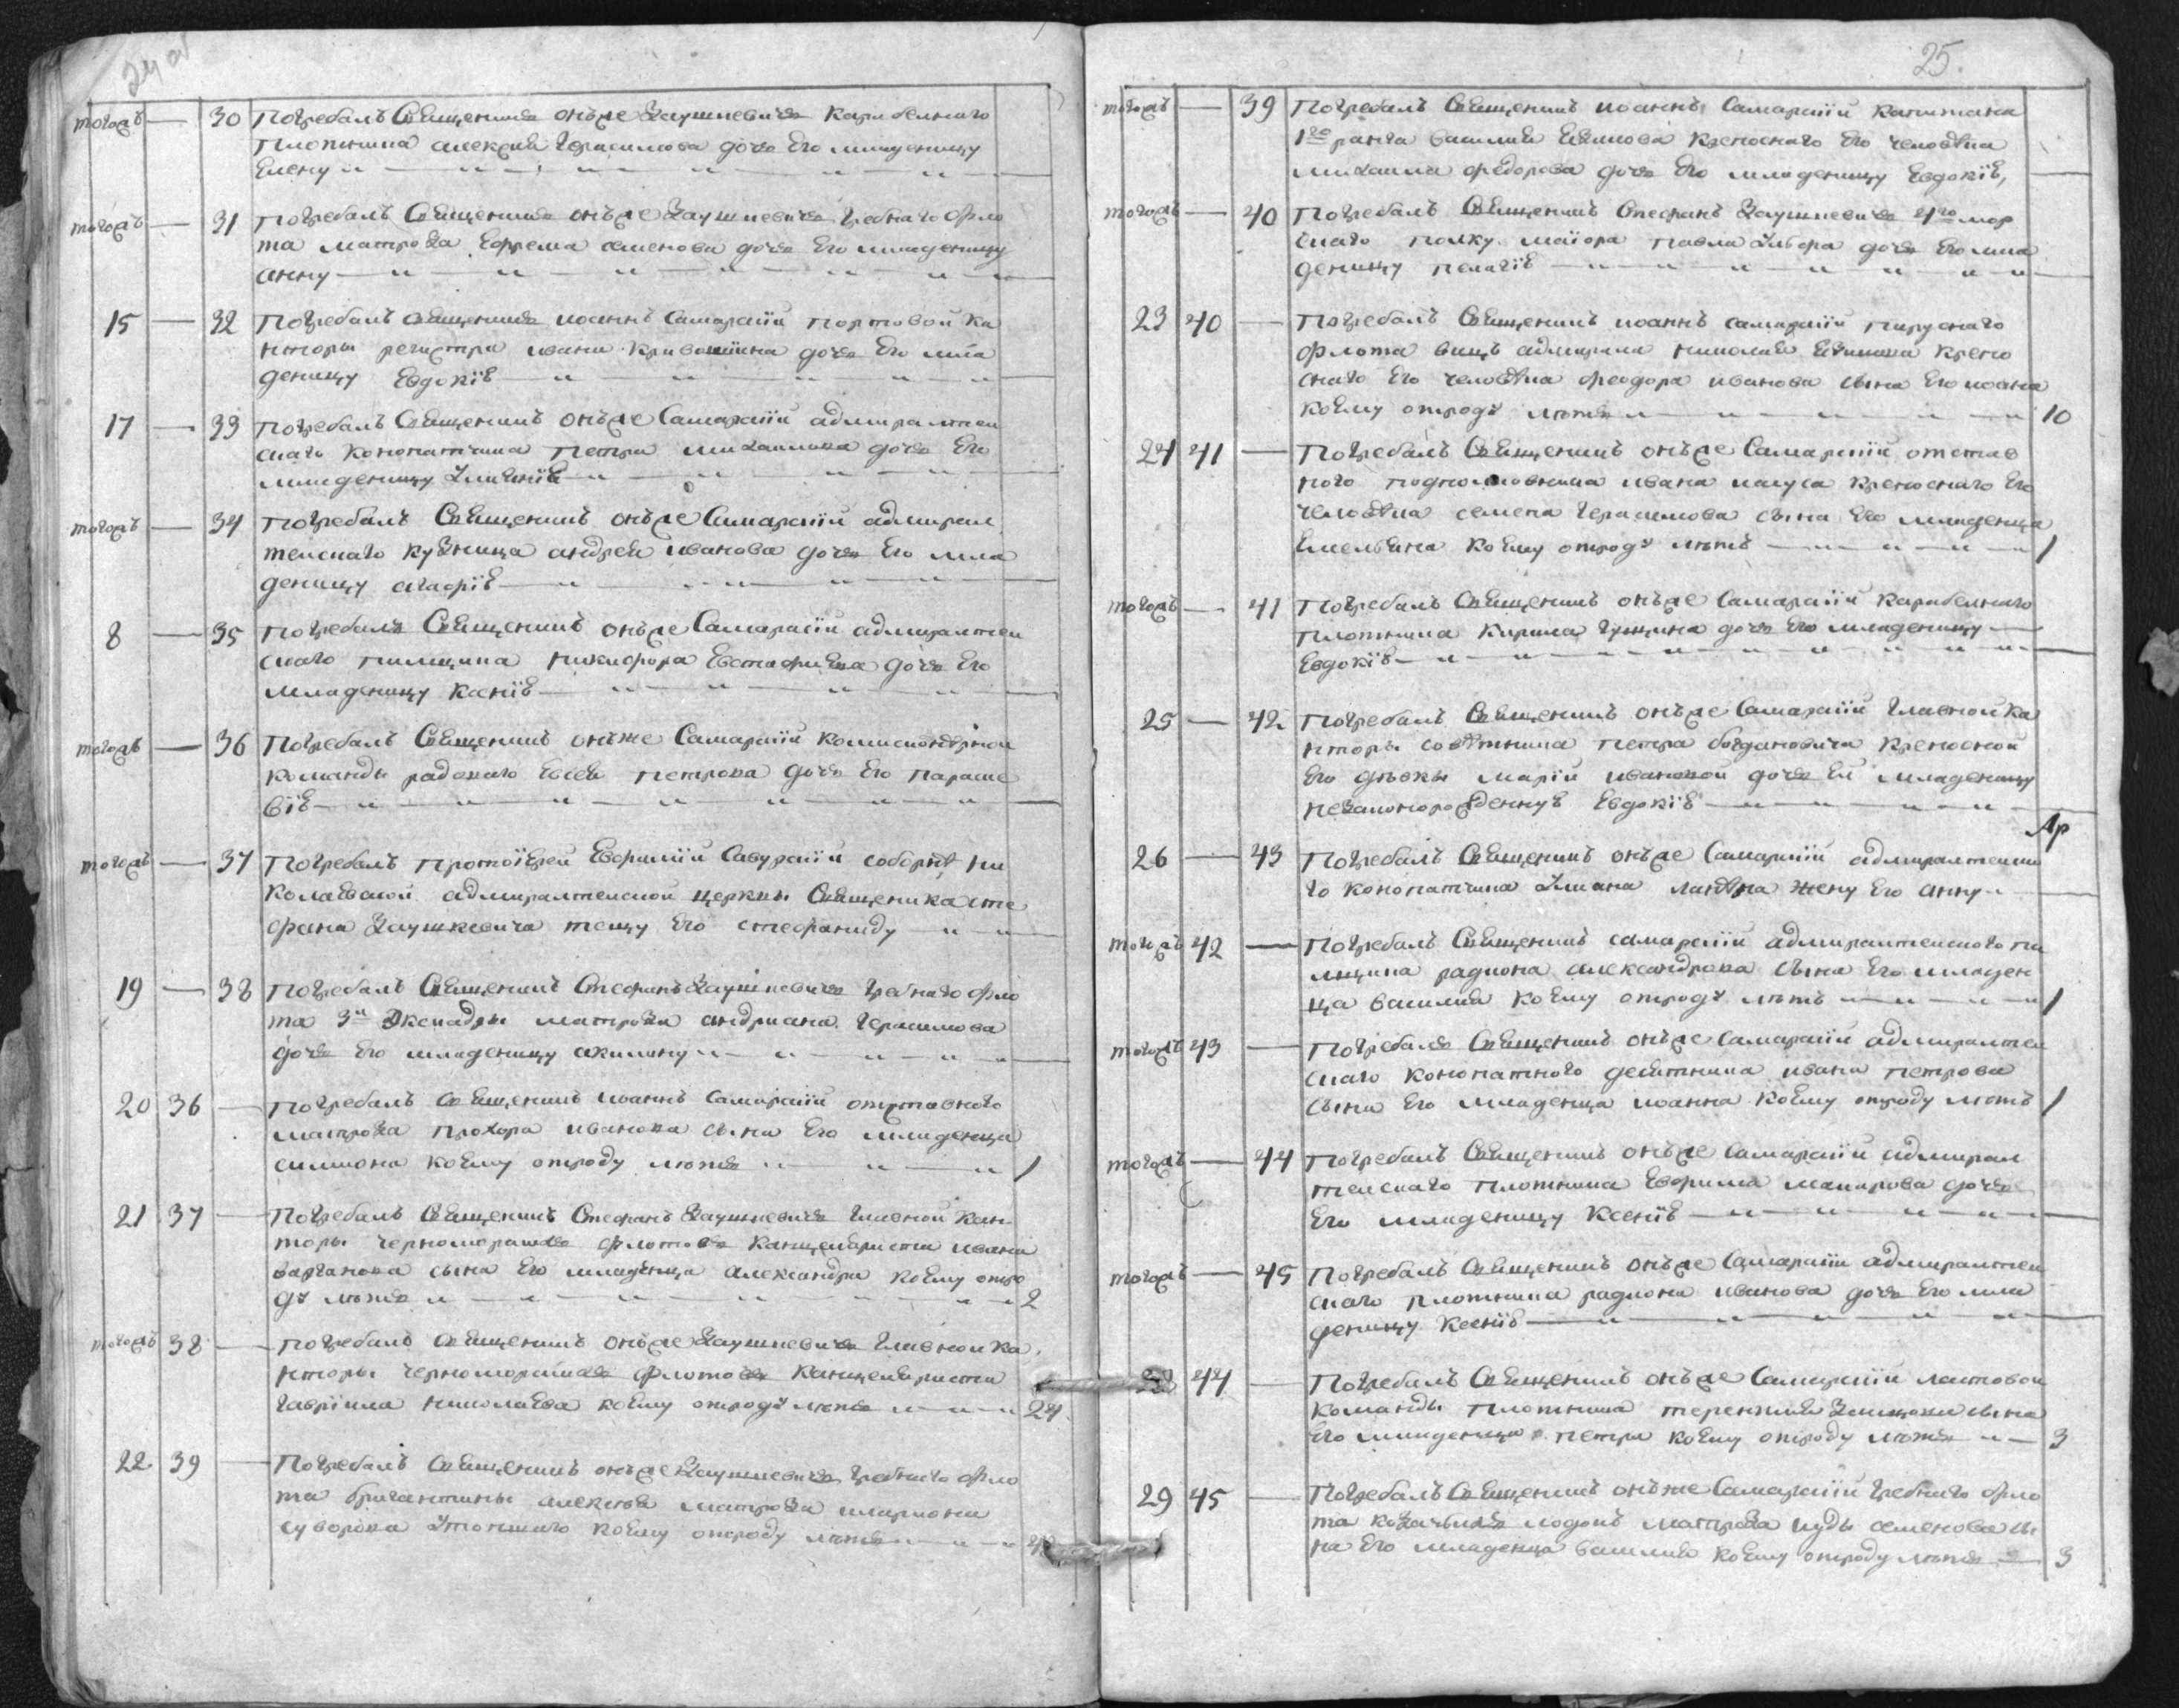 24 об
тогожъ — 30 Погребалъ Священникъ онъже Заушкевичъ Карабелнаго
плотника алексѣя Герасимова дочь Его младеницу
Елену
тогожъ — 31 Погребалъ Священникъ онъже Заушкевичъ гребнаго фло
та матроза Ефрема семенова дочь Его младеницу
анну
15 — 32 Погребалъ священникъ иоаннъ Самарскій портовой ка
нторы регистра ивана Кривошиина дочь Его мла
деницу Евдокію
17 — 33 Погребалъ Священникъ онъже Самарскій адмиралтеи
скаго конопатчика петра михаилова дочь Его
младеницу Улиянію
тогожъ — 34 Погребалъ Священникъ онъже Самарскій адмирал
теискаго кузнеца андрея иванова дочь Его мла
деницу агафію
8 — 35 погребалъ Священникъ онъже Самарскій адмиралтеи
скаго пилщика никифора Евстафиева дочь Его
младеницу Ксенію
тогожъ — 36 Погребалъ Священникъ онъже Самарскій
команды радоваго Евсея петрова дочь Его параске
вію
тогожъ — 37 Погребалъ протоіерей Евфимій Савурскій соборнѣ ни
колаевской адмиралтеиской церквы Священика сте
фана Заушкевича тещу Его стефаниду
19 — 38 погребалъ Священникъ Стефанъ Заушкевичъ гребнаго фло
та 3й Эскадры матроза андриана Герасимова
дочь Его младеницу акилину
20 36 — погребалъ Священникъ иоаннъ Самарскій отставного
матроза прохора иванова сына Его младенца
симиона коему отроду лѣтъ 1
21 37 — погребалъ Священникъ Стефанъ Заушкевичъ главной кан
торы черноморскихъ флотовъ канцеляриста ивана
варганова сына Его младенца александра коему отро
ду лѣтъ 2
тогожъ 38 — погребалъ священникъ онъже Заушкевичъ главнои ка
нторы черноморскихъ флотовъ канцеляриста
гавріила николаева коему отроду лѣтъ 24
22 39 — Погребалъ Священникъ онъже Заушкевичъ гребнаго фло
та бригантины алексѣя матроза илариона
суворова утопшаго коему отроду лѣтъ
25.
тогожъ — 39 Погребалъ Священникъ иоаннъ Самарскій капитана
1го ранга василия Языкова крепоснаго Его человѣка
михаила федорова дочь Его младеницу Евдокію,
тогожъ — 40 Погребалъ Священникъ Стефанъ Заушкевичъ 4го мор
скаго полку маіора павла дочь Его мла
деницу пелагію
23 40 — Погребалъ Священникъ иоаннъ самарскій паруснаго
флота вицъ адмирала николая крепо
снаго Его человѣка феодора иванова сына Его иоана
коему отроду лѣтъ 10
24 41 — Погребалъ Священникъ онъже Самарскій отстав
ного подполковника ивана крепоснаго Его
человѣка семена Герасимова сына Его младенца
Емельяна коему отроду лѣтъ 1
тогожъ — 41 Погребалъ Священникъ онъже Самарскій карабелнаго
плотника Кирила Гущина дочь Его младеницу
Евдокію
25 — 42 Погребалъ Священникъ онъже Самарскій главной ка
нторы совѣтника петра богдановича крепосной
Его дѣвки маріи ивановой дочь Ей младеницу
незаконорожденную Евдокію
26 — 43 Погребалъ Священникъ онъже Самарскій адмиралтеиска
го конопатчика Улиана жену Его анну
тогожъ 42 — Погребалъ Священникъ самарскій адмиралтеиского пи
лщика радиона александрова сына Его младен
ца василия коему отроду лѣтъ 1
тогожъ 43 — Погребалъ Священникъ онъже самарскій адмиралтеи
скаго конопатного десятника ивана петрова
сына Его младенца иоанна коему отроду лѣтъ 1
тогожъ — 44 Погребалъ Священникъ онъже самарскій адмирал
теискаго плотника Евфима макарова дочь
Его младеницу Ксенію
тогожъ — 45 Погребалъ Священникъ онъже Самарскій адмиралтеи
скаго плотника радиона иванова дочь Его мла
деницу Ксенію
44 — Погребалъ Священникъ онъже Самарскій ластовой
команды плотника терентия сына
Его младенца петра коему отроду лѣтъ 3
29 45 — Погребалъ Священникъ онъже Самарскій гребнаго фло
та козачьихъ лодокъ матроза иуды семенова сы
на Его младенца василия коему отроду лѣтъ 3